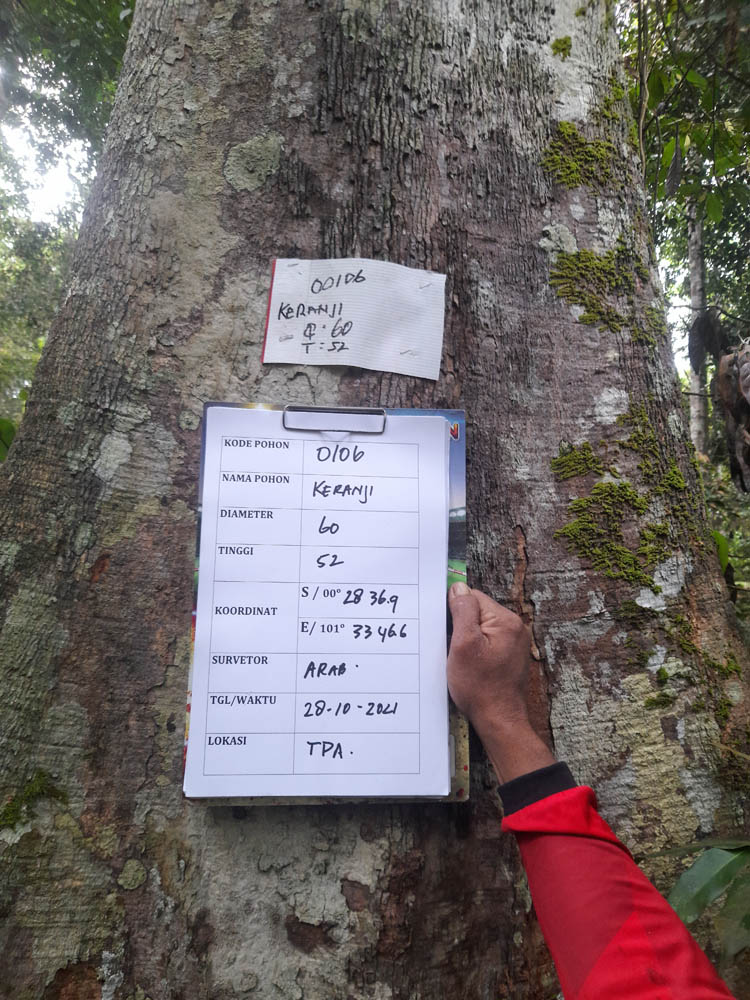 00106
KERANJI
Φ: 60
T: 52
KODE POHON 0106
NAMA POHON KERANJI
DIAMETER 60
TINGGI 52
KOORDINAT S / 00° 28 36.9
E/ 101° 33 46.6
SURVETOR ARAB.
TGL/WAKTU 28-10-2021
LOKASI TPA.